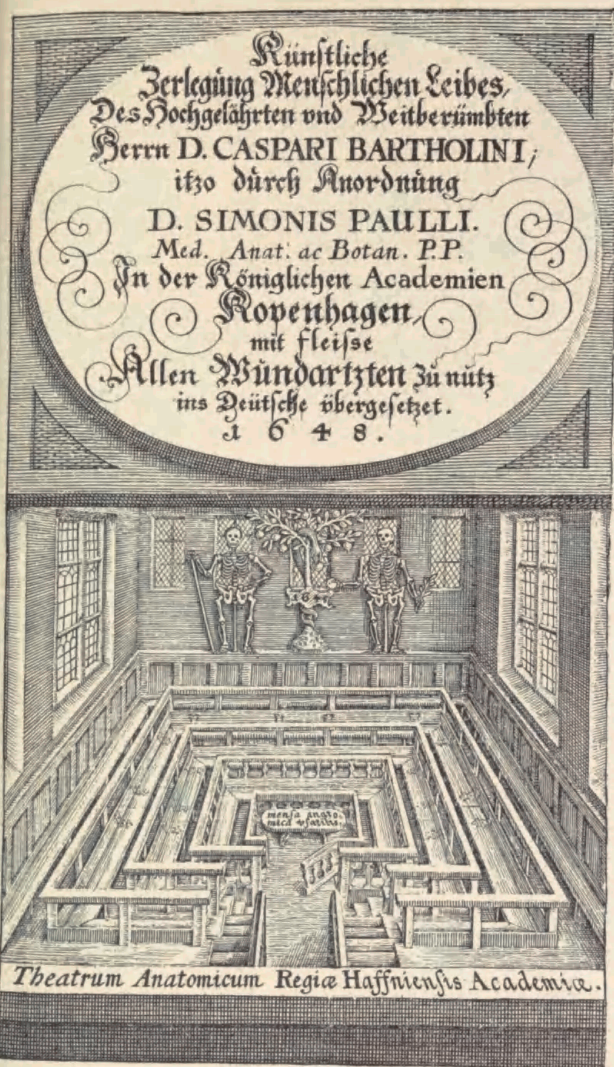 Künstliche
Zerlegüng Menschlichen Leibes,
Des Hochgelährten vnd Weitberümbten
Herrn D. CASPARI BARTHOLINI;
itzo dürch Anordnüng
D. SIMONIS PAULLI.
Med. Anat. ac Botan. P.P.
In der Königlichen Academien
Kopenhagen,
mit fleisse
Allen Wündartzten Zü nütz
ins Deütsche vbergesetzet.
1648.
mensa anato-
mica
Theatrum Anatomicum Regiæ Haffniensis Academiæ.